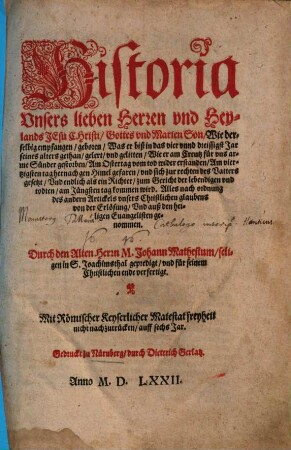 Historia
Unsers lieben Herren und Hey-
lands JEsu CHristi / Gottes und Marien Son / Wie der-
selbig empfangen / geboren / Was er biß in das vier unnd dreissigst Jar
seines alters gethan / gelert / und gelitten / Wie er am Creutz für uns ar-
me Sünder gestorben / Am Ostertag vom tod wider erstanden / Am vier-
tzigsten tag hernach gen Himel gefaren / und sich zur rechten des Vatters
gesetzt / Und endlich als ein Richter / zum Gericht der lebendigen und
todten / am Jüngsten tag kommen wird. Alles nach ordnung
des andern Artickels unsers Christlichen glaubens
von der Erlösung / Und auß den hei-
ligen Euangelisten ge-
nommen.
Durch den Alten Herrn M. Johann Mathesium / seli-
gen in S. Joachimsthal gepredigt / und für seinem
Christlichen ende verfertigt.
Mit Römischer Keyserlicher Maiestat freyheit
nicht nachzutrücken / auff sechs Jar.
Gedruckt zu Nürnberg / durch Dietrich Gerlatz.
Anno M. D. LXXII.